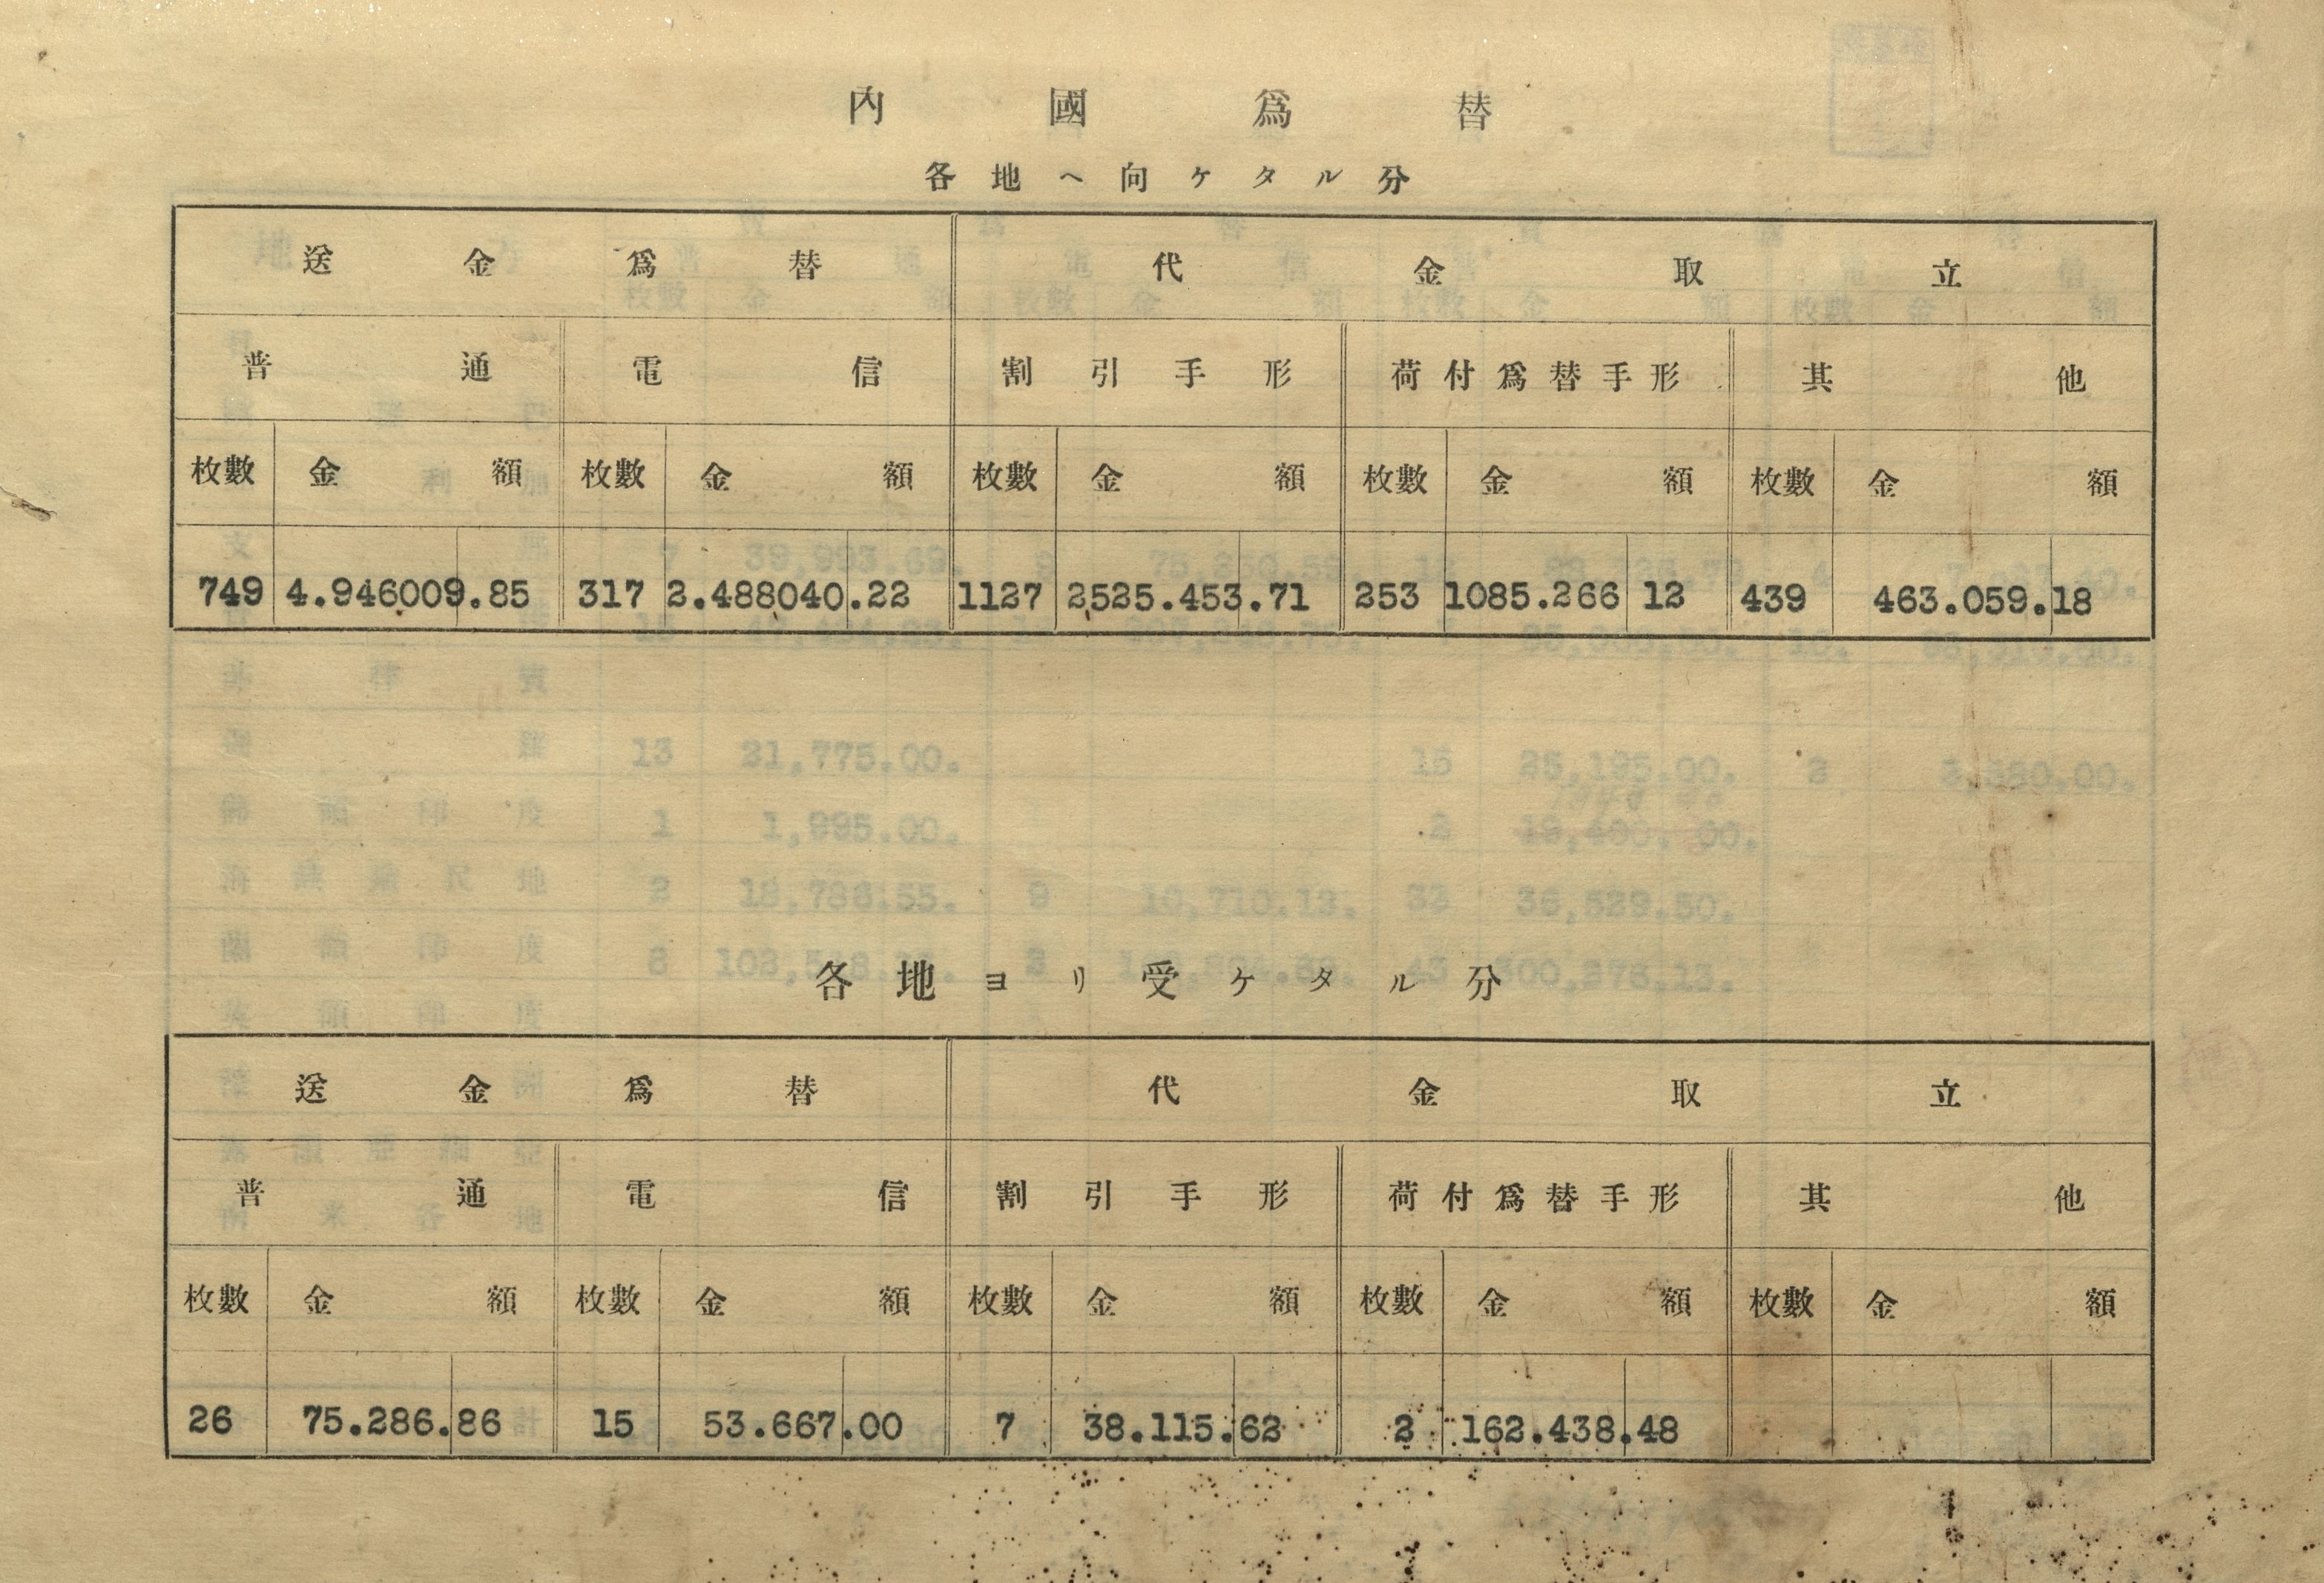 內國爲替
各地ヘ向ケタル分
送金爲替 代金取立
普通 電信 割引手形 荷付爲替手形 其他
枚數 金額 枚數 金額 枚數 金額 枚數 金額 枚數 金額
749 4.946009.85 317 2.488040.22 1127 2525.453.71 253 1085.266 12 439 463.059.18
各地ヨリ受ケタル分
送金爲替 代金取立
普通 電信 割引手形 荷付爲替手形 其他
枚數 金額 枚數 金額 枚數 金額 枚數 金額 枚數 金額
26 75.286.86 15 53.667.00 7 38.115.62 2 162.438.48